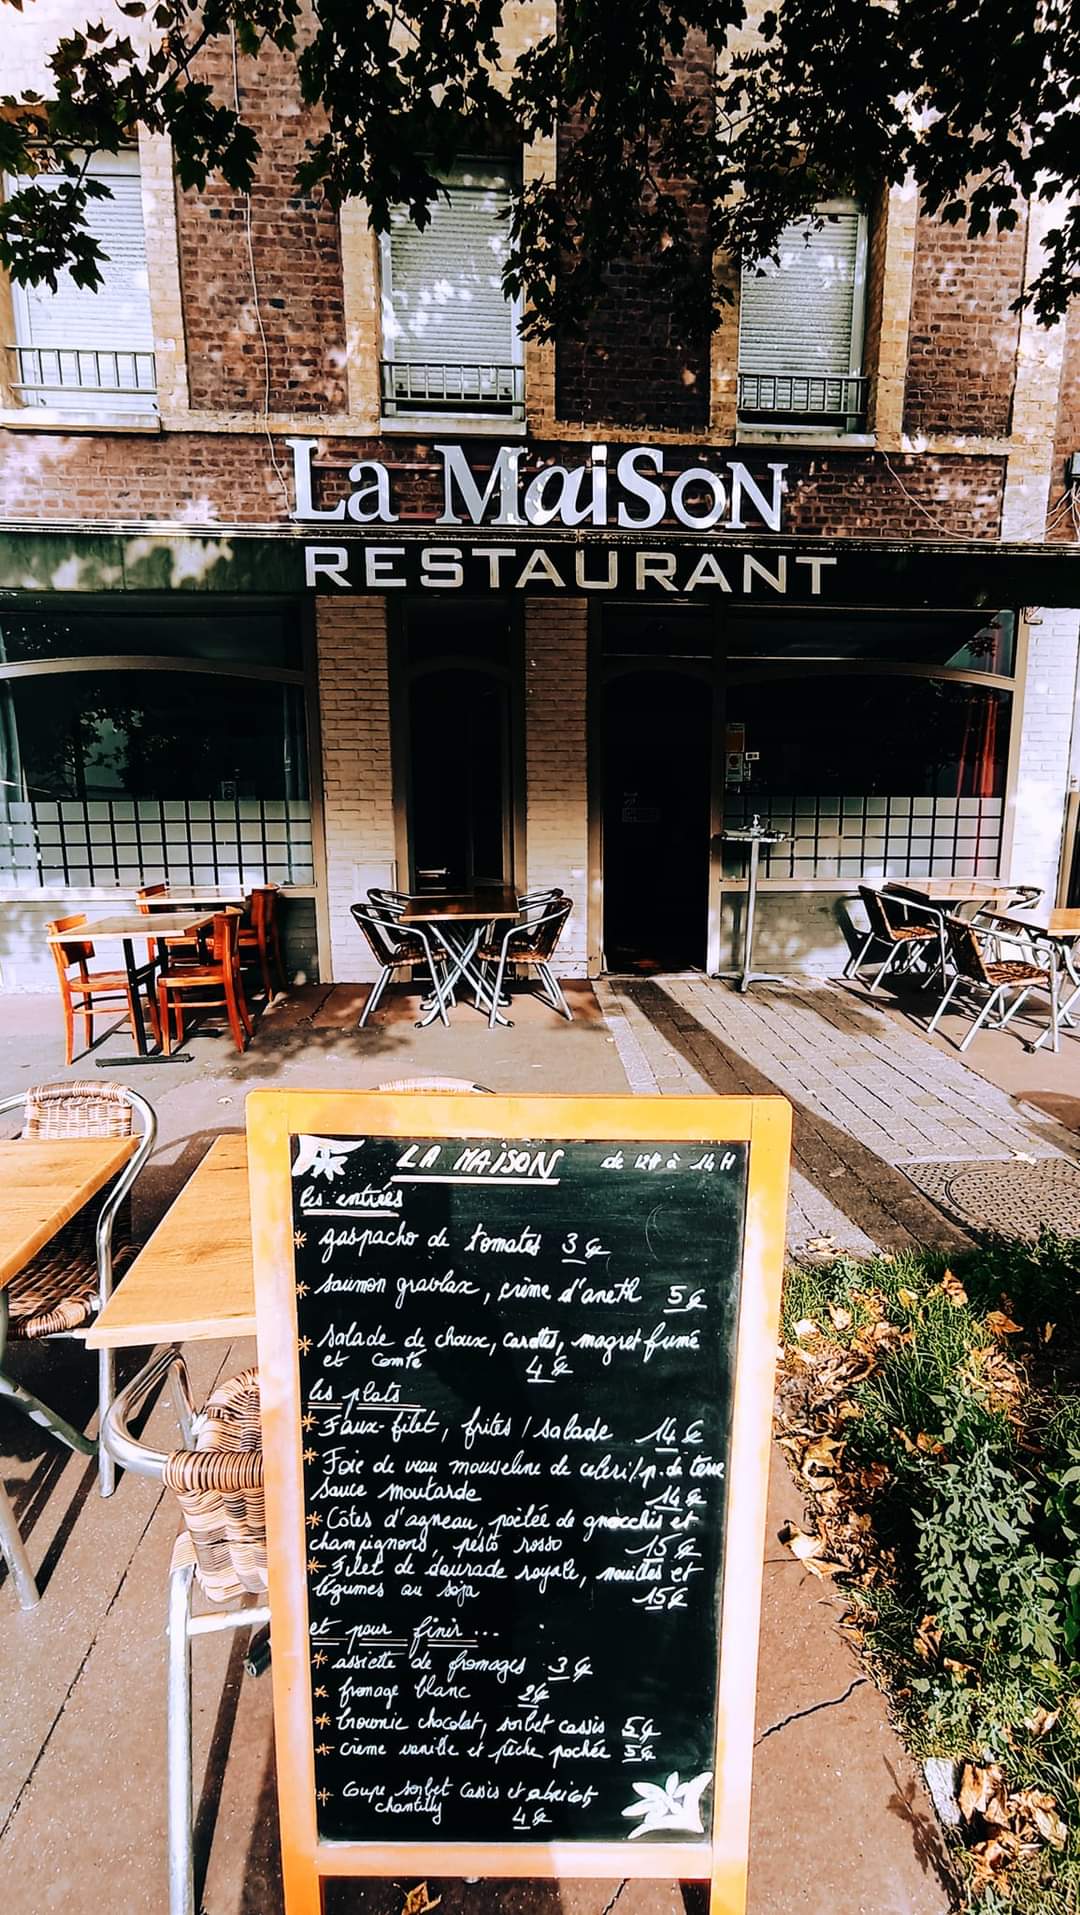 La MaiSoN
RESTAURANT
LA MAISON de 12H à 14H
les entrées
* gaspacho de tomates 3€
* saumon gravlax, crème d'aneth 5€
* salade de choux, carottes, magret fumé
et comté 4€
les plats
* Faux-filet, frites / salade 14€
* Foie de veau mousseline de celeri/p. de terre
sauce moutarde 14€
* Côtes d'agneau, poêlée de gnocchis et
champignons, pesto rosso 15€
* Filet de daurade royale, nouilles et
légumes au soja 15€
et pour finir...
* assiette de fromages 3€
* fromage blanc 2€
* brownie chocolat, sorbet cassis 5€
* crème vanille et pêche pochée 5€
* coupe sorbet cassis et abricot,
chantilly 4€